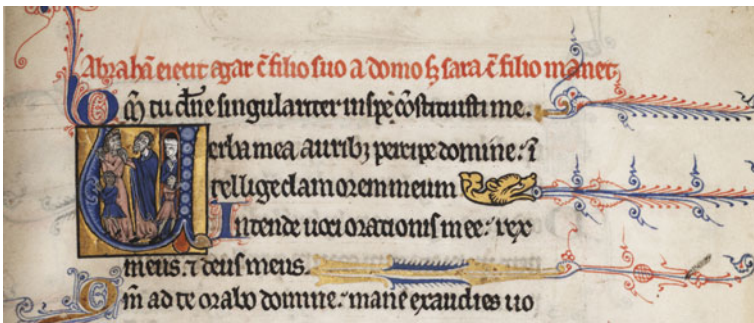 Abrahā eiecit agar c̄ filio suo a domo ſꝫ sara c̄ filio manet
Qm̄ tu dn̄e singulariter in spe cōstituisti me.
Verba mea auribꝫ percipe domine: ī
tellige clamorem meum
Intende uoci orationis mee: rex
meus. ⁊ deus meus.
Qm̄ ad te orabo domine: mane exaudies uo